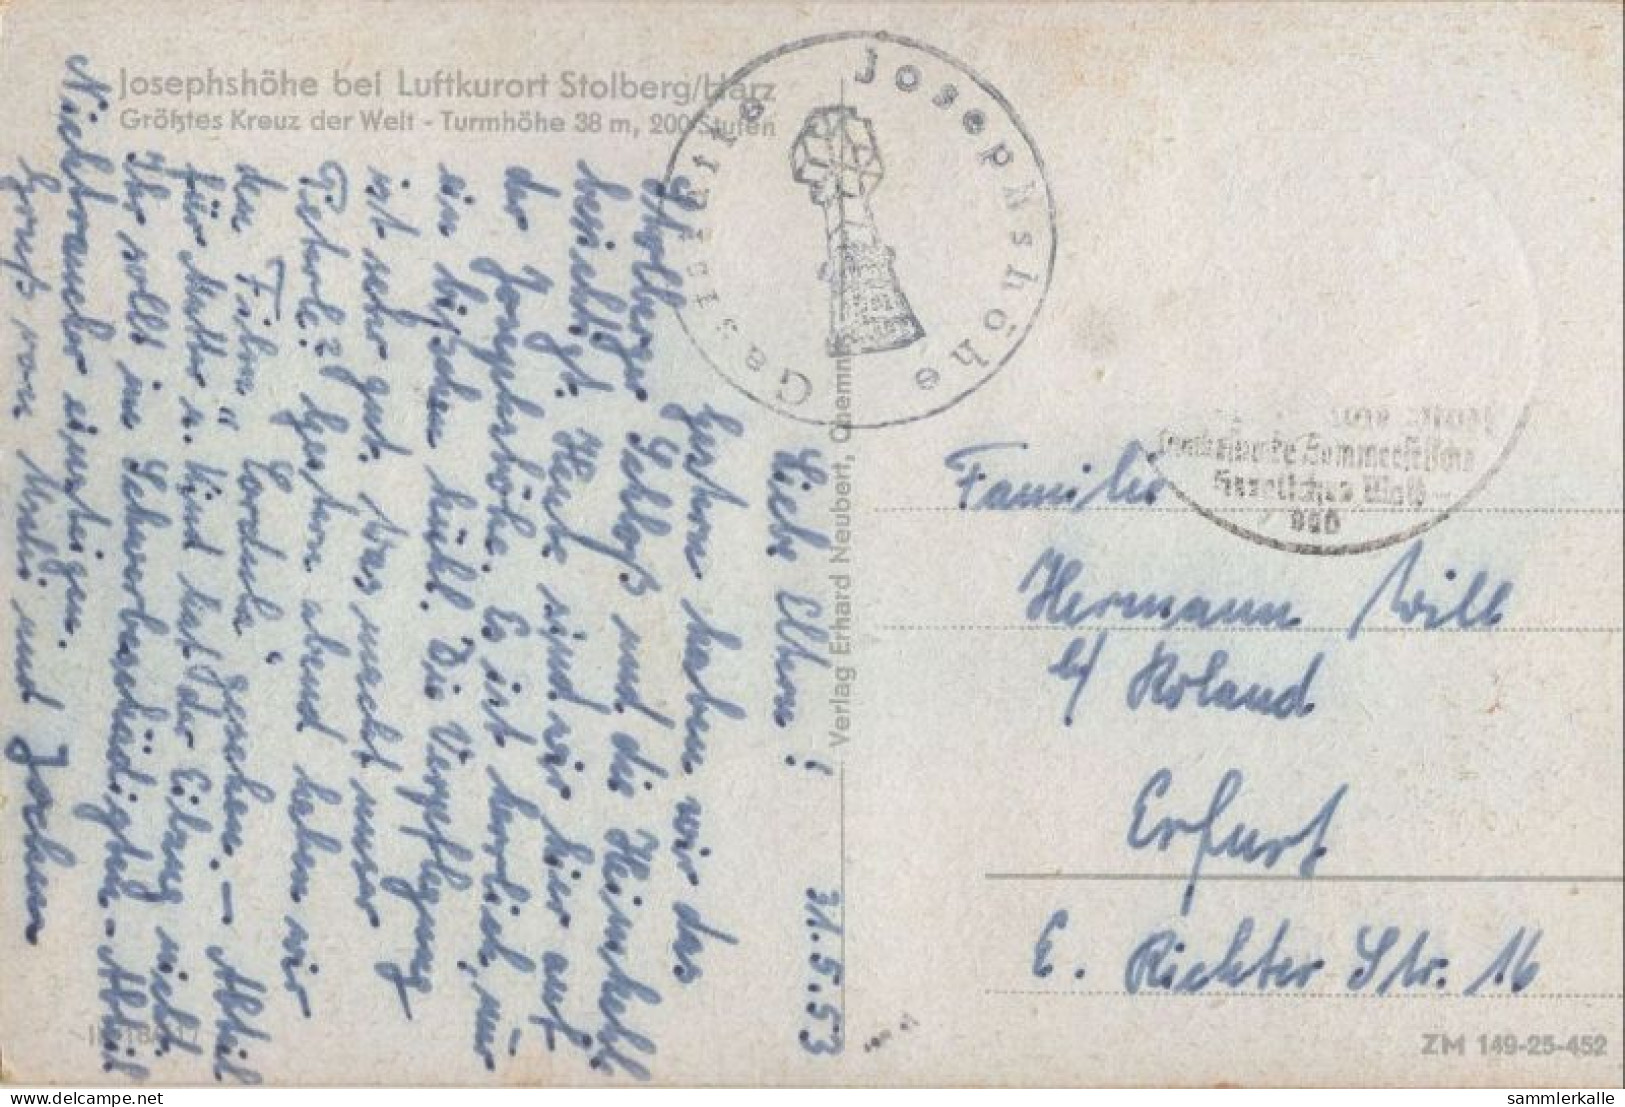 Josephshöhe bei Luftkurort Stolberg/Harz
Größtes Kreuz der Welt - Turmhöhe 38 m, 200 Stufen
Gaststätte Josephshöhe
31.5.53
Liebe Eltern!
Gestern haben wir das
Stolberger Schloß und die Heimkehle
besichtigt. Heute sind wir hier auf
der Josephshöhe. Es ist herrlich, nur
ein bißchen kühl. Die Verpflegung
ist sehr gut. Was macht unser
Peterle? Gestern abend haben wir
den Film "Cordula" gesehen. - Abteil
für Mutter u. Kind hat der Eilzug nicht
Ihr sollt ins Schwerbeschädigten-Abteil
Nichtraucher einsteigen.
Gruß von und Jochen
Verlag Erhard Neubert, Chemnitz
Sommerfrische
Familie
Hermann Will
b/ Roland
Erfurt
E. Richter Str. 16
ZM 149-25-452
www.delcampe.net
sammlerkalle